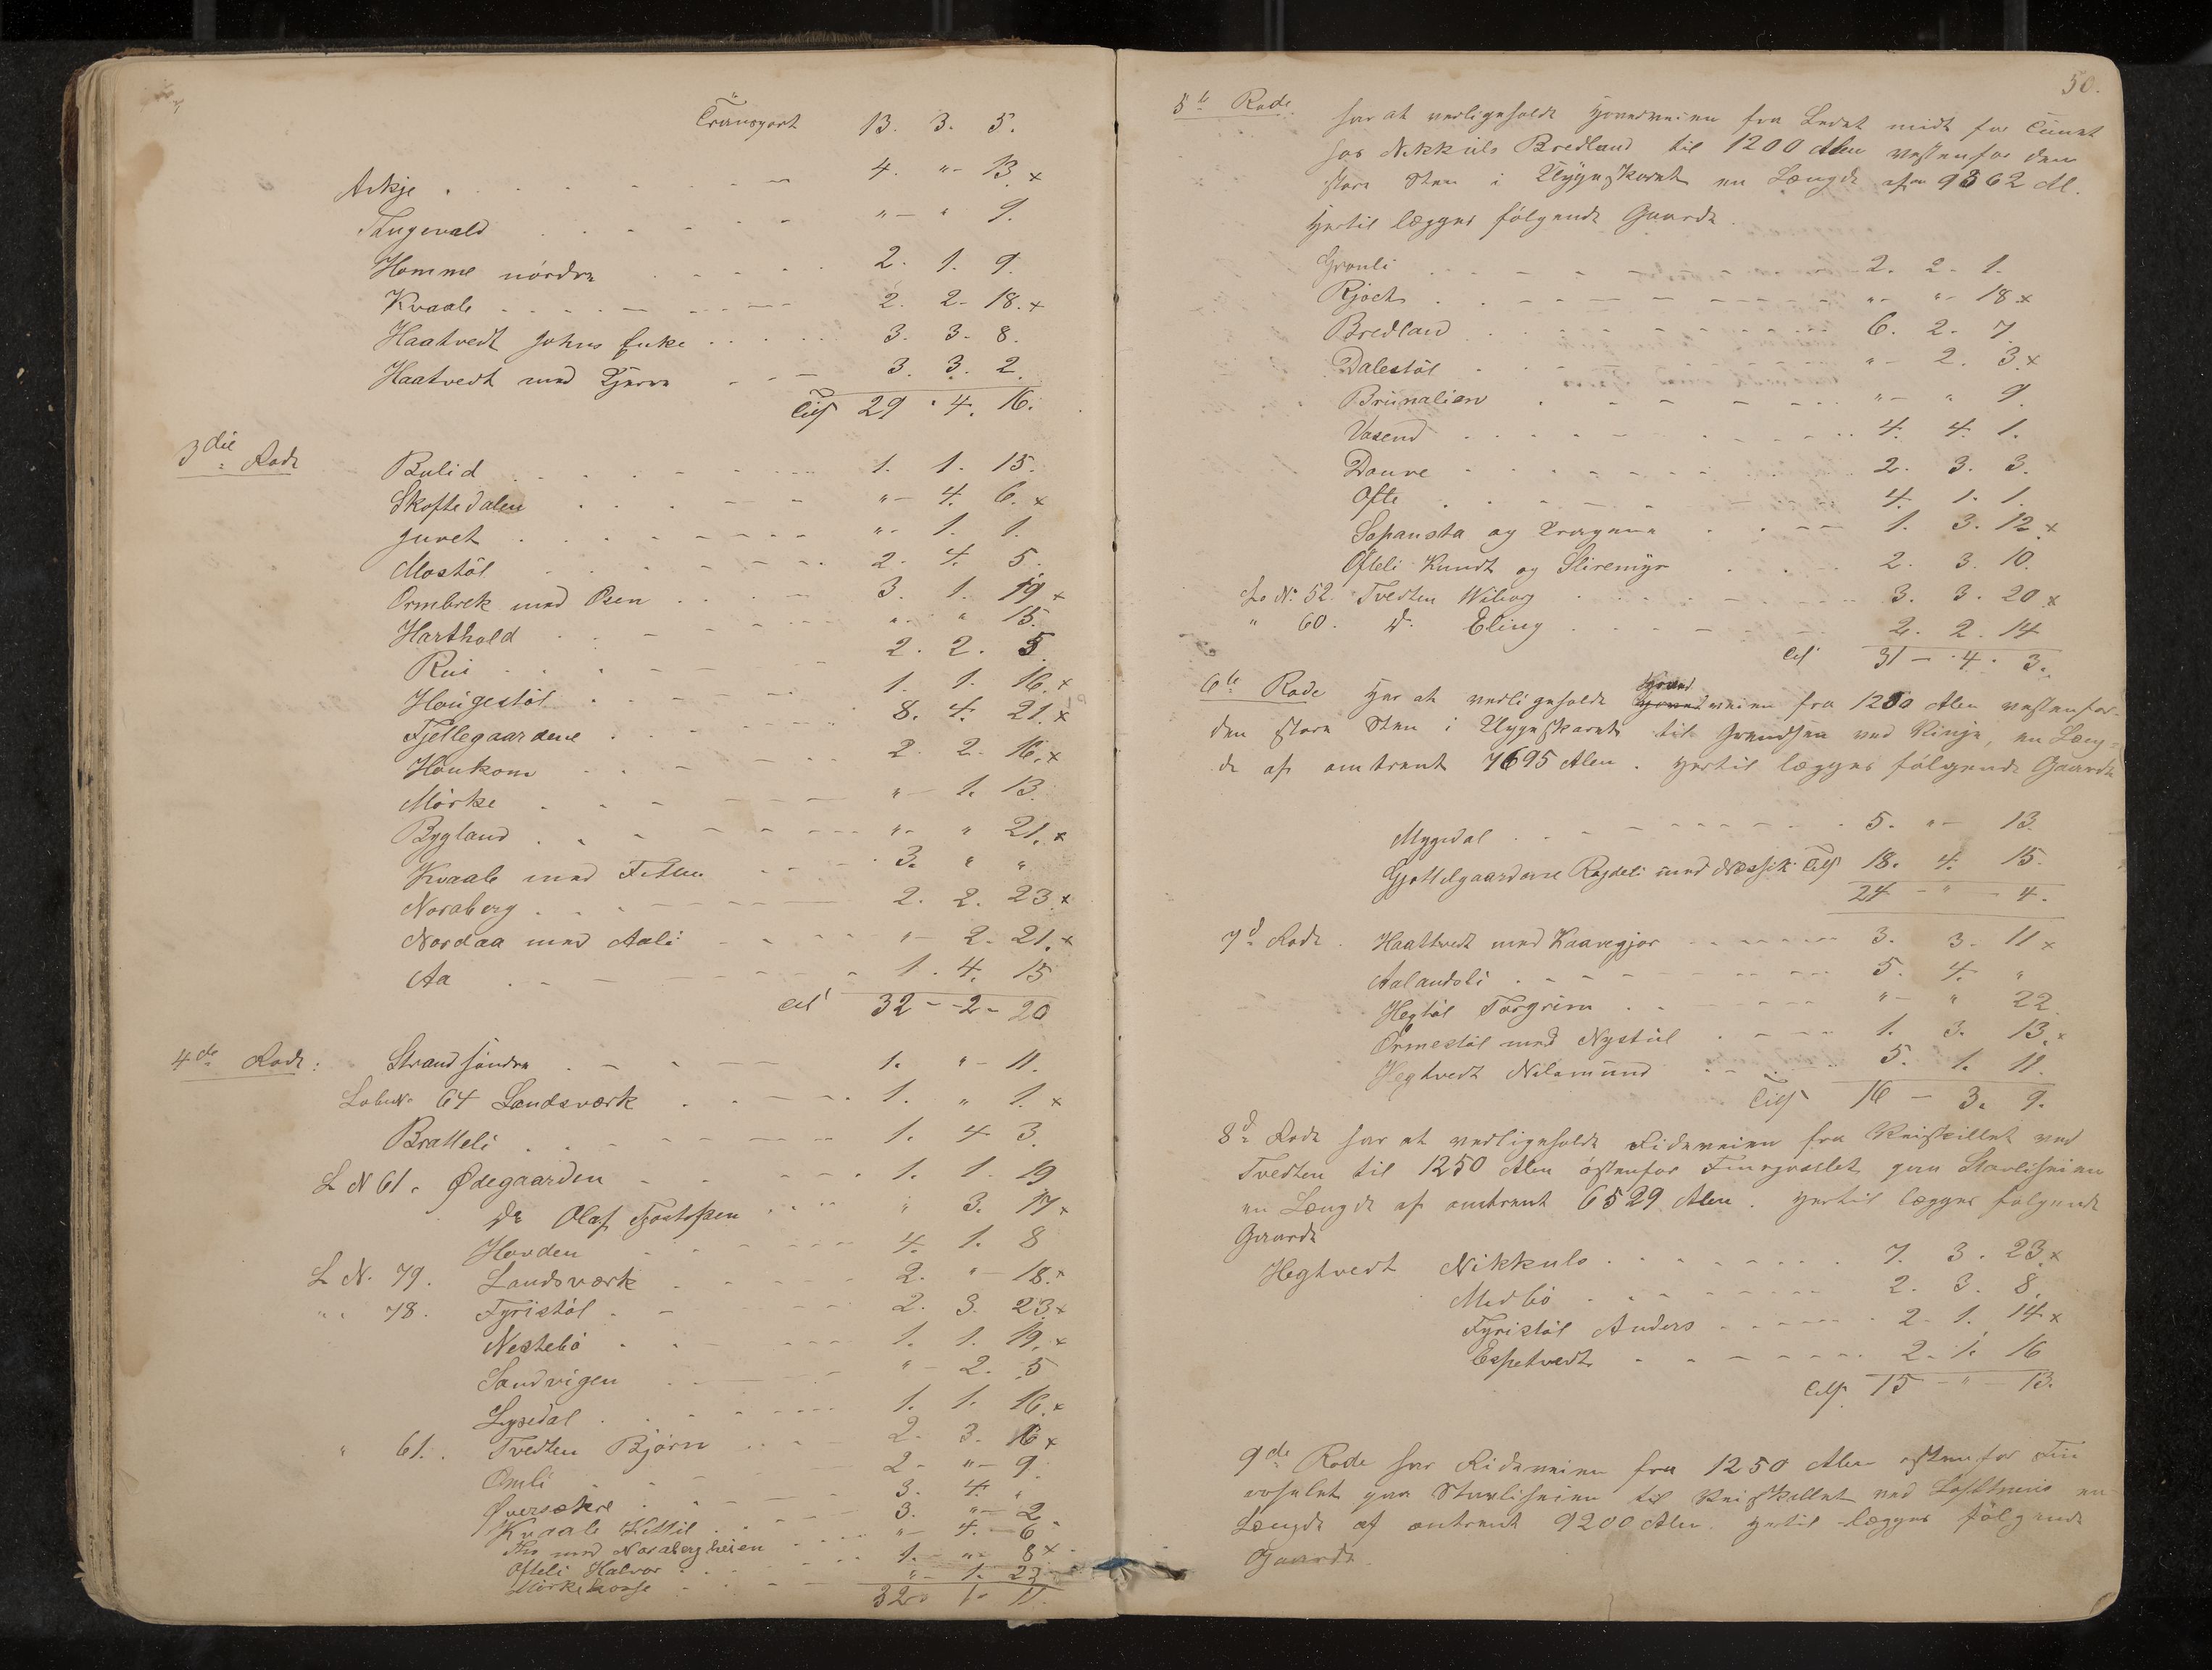 Transport 13. 3. 5.
Askje . 4. "- 13 x
Tungevald "- " 9.
Homme nördre 2. 1. 9.
Kvaale 2. 2- 18. x
Haatvedt Johns Enke 3. 3- 8.
Haatvedt med Kjerra 3. 3. 2.
Tils 29 . 4. 16.
3die Rode Bulid 1. 1. 15.
Skoftedalen "- 4. 6. x
Juvet "- 1. 1.
Mostöl 2. 4. 5.
Ormbrek med Osen 3. 1. 19 x
Harthold " " 15.
Rui 2. 2. 5
Haugestöl 1. 1. 16. x
Fjellegaardene 8. 4. 21. x
Haukom 2. 2- 16. x
Mörke "- 1. 13.
Bygland "- " 21. x
Kvaale med 3. " "
Noraberg 2. 2. 23. x
Nordaa med Aali "- 2- 21. x
Aa 1. 4. 15
Tils 32 - -2- 20
4de Rode: Strand söndre 1. "- 11.
Löbe No. 64 Landsværk 1. " 1. x
Bratteli 1. 4 3.
L N 61. Ödegaarden 1. 1. 19
do Olaf Tjostofsen " 3. 17 x
Hovden 4. 1. 8
L N. 79. Landsværk 2. "- 18. x
" 78. Fyristöl 2. 3. 23. x
Nestebö 1. 1. 19. x
Sandvigen "- 2. 5
Lysedal 1. 1. 16. x
" 61. Tvedten Björn 2- 3. 16 x
Omli 2- "- 9.
Översækre 3. 4. "
Kvaale Kittil 3. "- 2
Tho med Norabergheien "- 4.- 6
Ofteli Halvor 1. "- 8 x
"- 1. 23
32. 1. 11.
50.
5te Rode. har at vedligeholde Hovedveien fra Ledet midt for Tunet
hos Nikkuls Bredland til 1200 Alen vestenfor den
store Sten i en Længde af 9362 Al.
Hertil lægges fölgende Gaarde.
Grouli 2. 2- 1.
Rjoch "- "- 18 x
Bredland 6. 2- 7
Dalestöl "- 2. 3 x
Brunalien "- " 9.
Vasend 4. 4. 1.
Dauve 2. 3. 3.
Ofte 4. 1. 1.
og 1. 3. 12 x
Ofteli Knudt og Sliremyr 2. 3. 10.
Lö No. 52. Tvedten Wiborg 3. 3. 20 x
" 60. do. Eling 2. 2. 14
Tils 31 - 4. 3.
6te Rode Har at vedligeholde Hovedveien fra 1200 Alen vestenfor
den store Sten i til Grændsen ved Vinje, en Læng=
de af omtrent 7695 Alen. Hertil lægges fölgende Gaarde
Mygedal 5. "- 13.
Gjöttilgaardene med Tils 18. 4. 15.
24 - " - 4.
7de Rode. Haattvedt med 3. 3. 11 x
Aalandsli 5. 4. "
Torgrim "- " 22.
Ormestöl med Nystul 1. 3. 13. x
Hegtvedt Nilsmund 5. 1. 11.
Tils 16 - 3. 9.
8de Rode har at vedligeholde Rideveien fra Veiskillet ved
Tvedten til 1250 Alen östenfor
en Længde af omtrent 6529 Alen. Hertil lægges fölgende
Gaarde
Hegtvedt Nikkuls 7. 3. 23. x
Medbö 2. 3. 8.
Fyristöl Anders 2. 1. 14 x
Espetvedt 2. 1. 16
Tils. 15 - " - 13.
9de Rode har Rideveien fra 1250 Alen östenfor
til Veiskillet ved en
Længde af omtrent 9200 Alen. Hertil lægges fölgende
Gaarde.